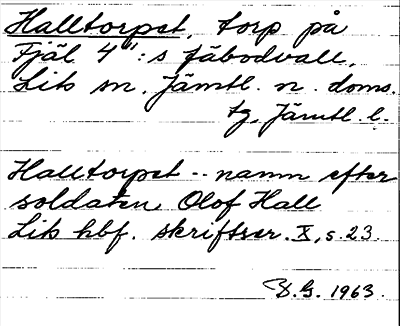 Halltorpet, torp på
Fjäl 4":s fäbodvall,
Lits sn. Jämtl. n. doms.
tg, Jämtl. l.
Halltorpet -- namn efter
soldaten Olof Hall
Lits hbf. skriftser. X, s. 23.
G. 1963.